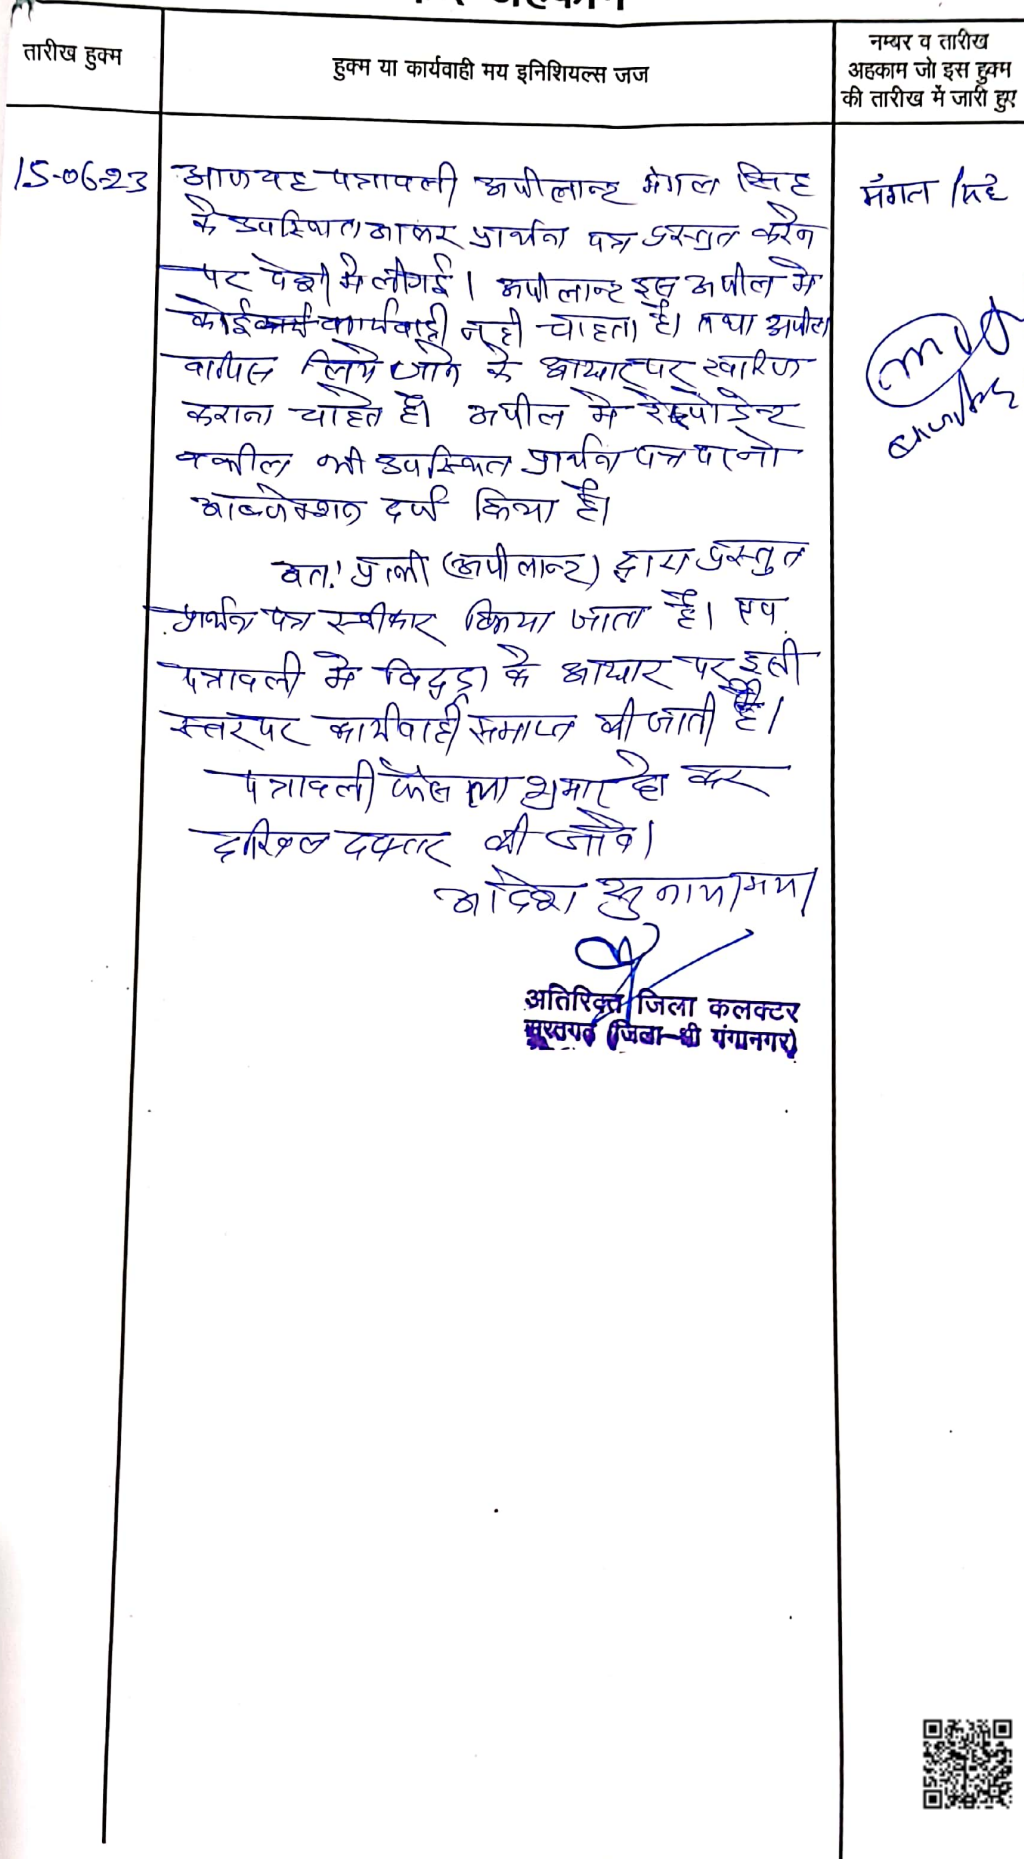 तारीख हुक्म
हुक्म या कार्यवाही मय इनिशियल्स जज
नम्बर व तारीख
अहकाम जो इस हुक्म
की तारीख में जारी हुए
15-06-23
आज यह पत्रावली अपीलान्ट मंगल सिंह
के उपस्थित आकर प्रार्थना पत्र प्रस्तुत करेन
पर पेशी मे ली गई। अपीलान्ट इस अपील मे
कोई कार्यवाही नही चाहता है। तथा अपील
वापिस लिये जाने के आधार पर खारिज
कराना चाहते है। अपील मे रेस्पोडेन्ट
वकील भी उपस्थित प्रार्थना पत्र पर नो
आब्जेक्शन दर्ज किया है।
अत: प्रार्थी (अपीलान्ट) द्वारा प्रस्तुत
प्रार्थना पत्र स्वीकार किया जाता है। एवं
पत्रावली मे विड्रा के आधार पर इसी
स्तर पर कार्यवाही समाप्त की जाती है।
पत्रावली फैसला शुमार हो कर
दाखिल दफ्तर की जावे।
आदेश सुनाया गया।
अतिरिक्त जिला कलक्टर
सूरतगढ़ (जिला-श्री गंगानगर)
मंगत सिंह